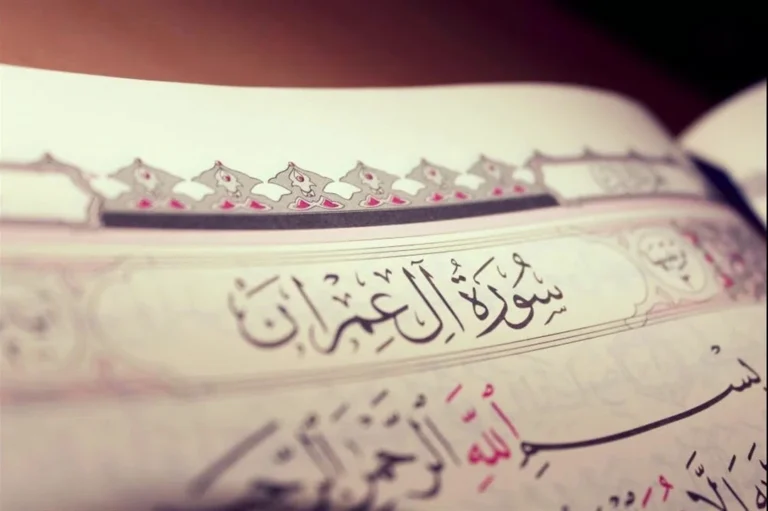 سُورَةُ آلِ عِمْرَانَ
بِسْمِ اللَّهِ الرَّحْمَٰنِ الرَّحِيمِ